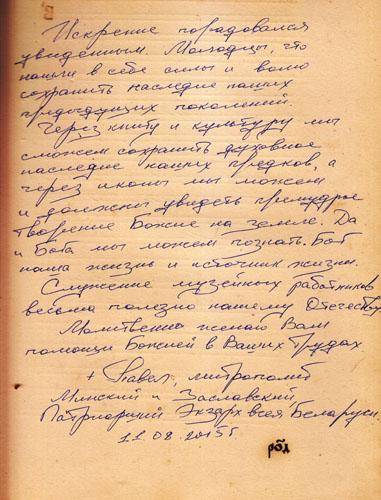 Искренне порадовался
увиденным. Молодцы, что
нашли в себе силы и волю
сохранить наследие наших
предыдущих поколений.
Через книгу и культуру мы
сможем сохранить духовное
наследие наших предков, а
через иконы мы можем
и должны увидеть премудрое
творение Божие на земле. Да
и Бога мы можем познать. Бог
наша жизнь и источник жизни.
Служение музейных работников
весьма полезно нашему Отечеству
Молитвенно желаю Вам
помощи Божией в Ваших трудах
+ Павел, митрополит
Минский и Заславский
Патриарший Экзарх всея Беларуси.
11.08.2015г.